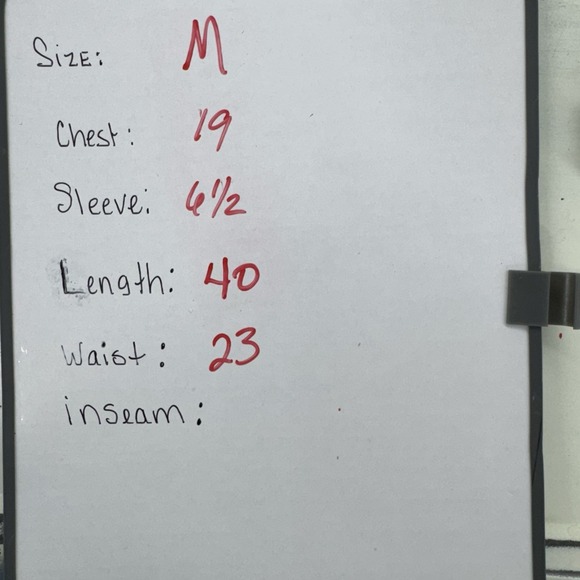 Size: M
Chest: 19
Sleeve: 6 1/2
Length: 40
Waist: 23
inseam: